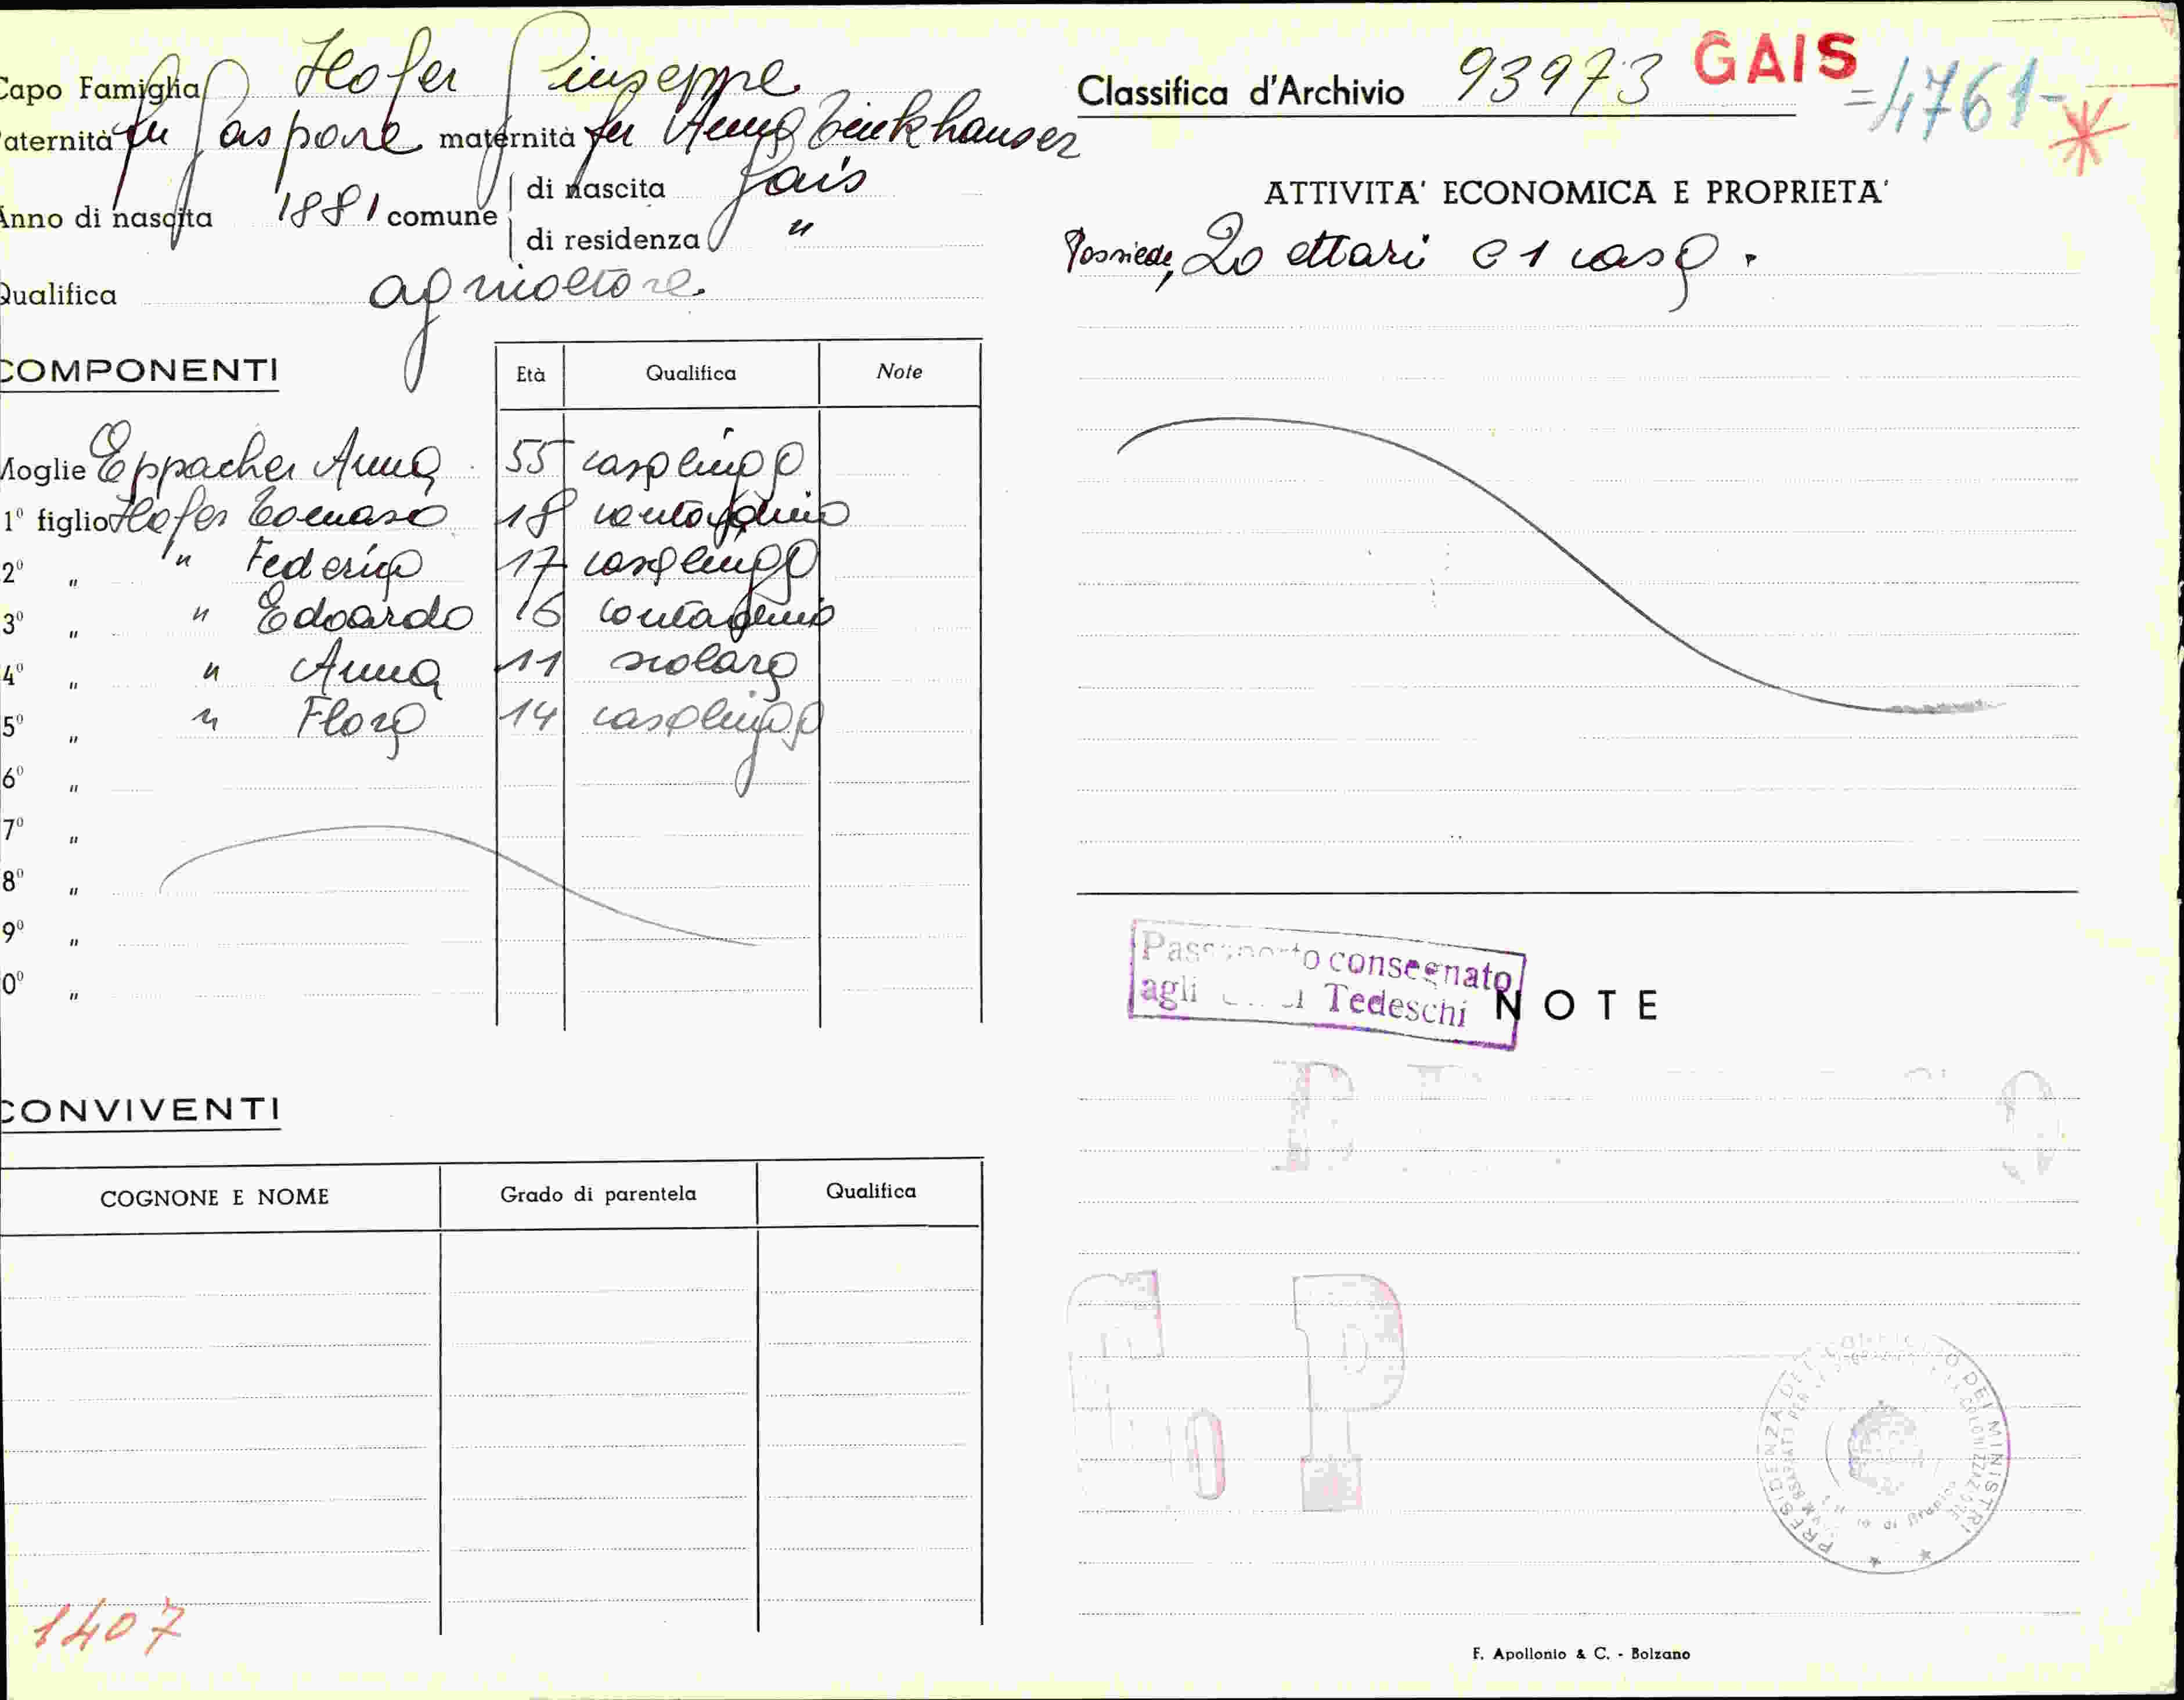 Capo Famiglia Hofer Giuseppe
Paternità fu Gaspare maternità fu Anna Zinkhauser
Anno di nascita 1881 comune di nascita Gais
di residenza "
Qualifica agricoltore
COMPONENTI Età Qualifica Note
Moglie Eppacher Anna 55 casalinga
1º figlio Hofer Tomaso 18 contadino
2º " " Federica 17 casalinga
3º " " Edoardo 16 contadino
4º " " Anna 11 scolara
5º " " Flora 14 casalinga
6º "
7º "
8º "
9º "
0º "
CONVIVENTI
COGNONE E NOME Grado di parentela Qualifica
1407
Classifica d'Archivio 93973 GAIS =4761-
ATTIVITA' ECONOMICA E PROPRIETA'
Possiede, 20 ettari e 1 casa.
Passaporto consegnato
agli Tedeschi
NOTE
P
PRESIDENZA DEL CONSIGLIO DEI MINISTRI
F. Apollonio & C. - Bolzano